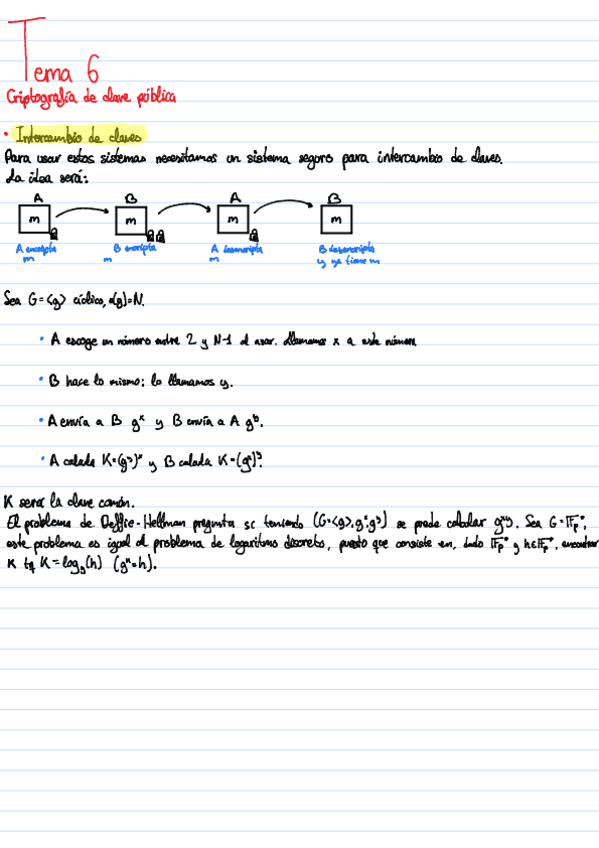 Tema 6
Criptografía de clave pública
• Intercambio de claves
Para usar estos sistemas necesitamos un sistema seguro para intercambio de claves.
La idea será:
A B A B
m m m m
A encripta m B encripta m A desencripta m B desencripta y ya tiene m
Sea G=<g> cíclico, o(g)=N.
• A escoge un número entre 2 y N-1 al azar. Llamamos x a este número
• B hace lo mismo; lo llamamos y.
• A envía a B gˣ y B envía a A gᵇ.
• A calcula K=(gʸ)ˣ y B calcula K=(gˣ)ʸ.
K será la clave común.
El problema de Deffie-Hellman pregunta si teniendo (G=<g>, gˣ, gʸ) se puede calcular gˣʸ. Sea G=𝔽ₚ*,
este problema es igual al problema de logaritmo discreto, puesto que consiste en, dado 𝔽ₚ* y h∈𝔽ₚ*, encontrar
K tq K=log_g(h) (gᴷ=h).